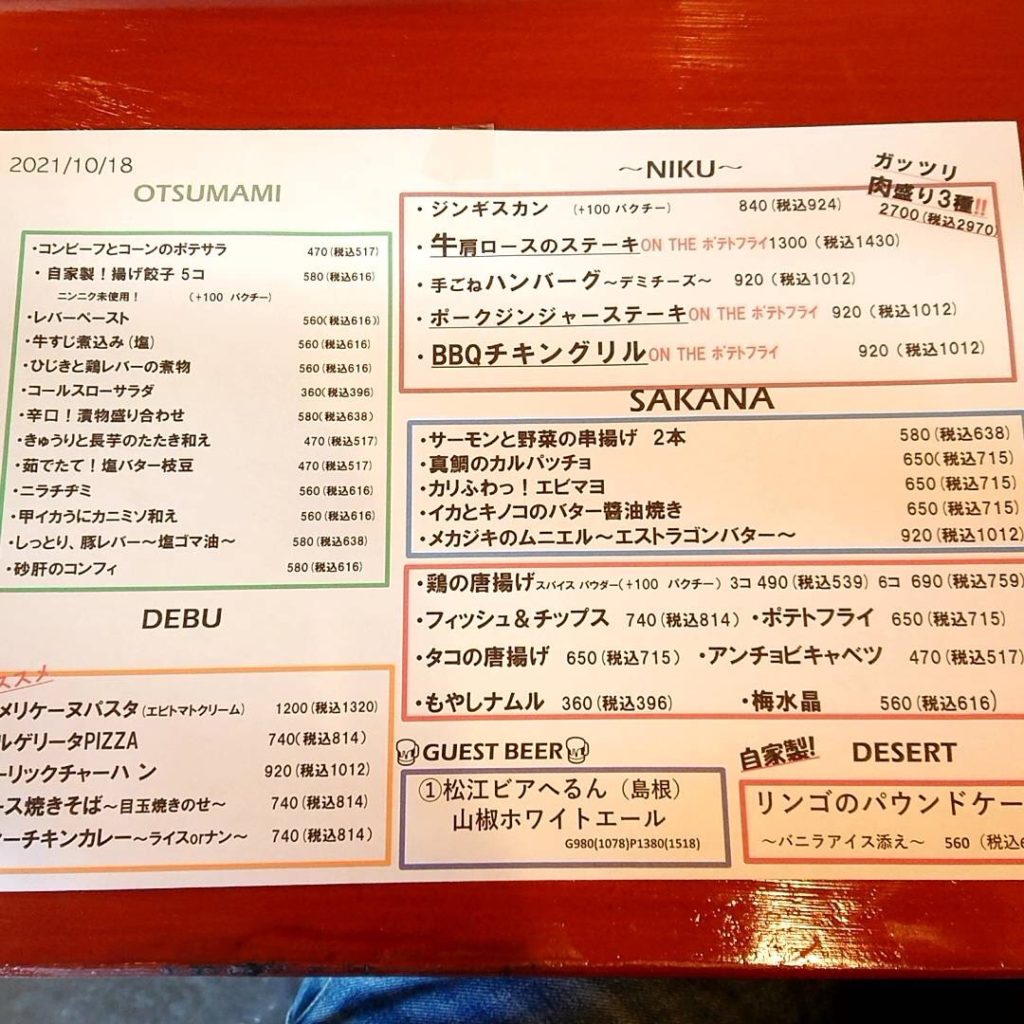 2021/10/18
OTSUMAMI
・コンビーフとコーンのポテサラ 470(税込517)
・自家製！揚げ餃子 5コ 580(税込616)
ニンニク未使用！ （+100 パクチー）
・レバーペースト 560(税込616))
・牛すじ煮込み(塩) 560(税込616)
・ひじきと鶏レバーの煮物 560(税込616)
・コールスローサラダ 360(税込396)
・辛口！漬物盛り合わせ 580(税込638)
・きゅうりと長芋のたたき和え 470(税込517)
・茹でたて！塩バター枝豆 470(税込517)
・ニラチヂミ 560(税込616)
・甲イカうにカニミソ和え 560(税込616)
・しっとり、豚レバー～塩ゴマ油～ 580(税込638)
・砂肝のコンフィ 580(税込616)
DEBU
ススメ
メリケーヌパスタ(エビトマトクリーム) 1200(税込1320)
ルゲリータPIZZA 740(税込814)
ーリックチャーハン 920(税込1012)
ース焼きそば～目玉焼きのせ～ 740(税込814)
ーチキンカレー～ライスorナン～ 740(税込814)
～NIKU～
ガッツリ
肉盛り3種!!
2700(税込2970)
・ジンギスカン （+100 パクチー） 840(税込924)
・牛肩ロースのステーキON THE ポテトフライ1300（税込1430)
・手ごねハンバーグ～デミチーズ～ 920（税込1012)
・ポークジンジャーステーキON THE ポテトフライ 920（税込1012)
・BBQチキングリルON THE ポテトフライ 920（税込1012)
SAKANA
・サーモンと野菜の串揚げ 2本 580(税込638)
・真鯛のカルパッチョ 650(税込715)
・カリふわっ！エビマヨ 650(税込715)
・イカとキノコのバター醤油焼き 650(税込715)
・メカジキのムニエル～エストラゴンバター～ 920(税込1012)
・鶏の唐揚げスパイス パウダー(+100 パクチー) 3コ 490(税込539) 6コ 690(税込759)
・フィッシュ＆チップス 740(税込814) ・ポテトフライ 650(税込715)
・タコの唐揚げ 650(税込715) ・アンチョビキャベツ 470(税込517)
・もやしナムル 360(税込396) ・梅水晶 560(税込616)
GUEST BEER
①松江ビアへるん（島根）
山椒ホワイトエール
G980(1078)P1380(1518)
自家製! DESERT
リンゴのパウンドケー
～バニラアイス添え～ 560（税込6